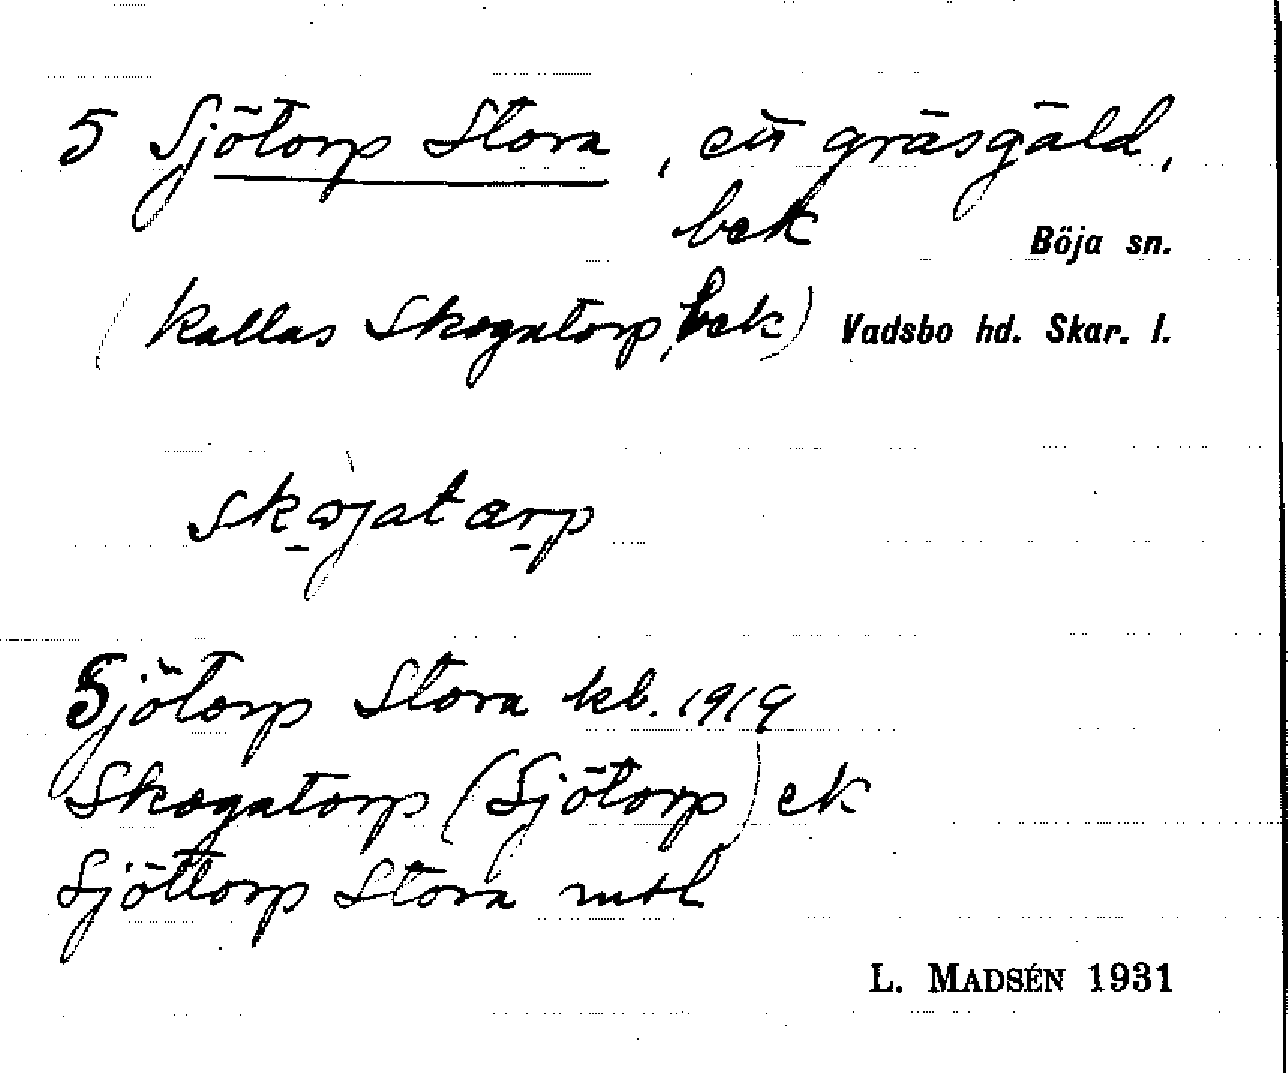 5 Sjötorp Stora, ett gräsgäld,
bek
Böja sn.
(kallas Skogatorp, bek)
Vadsbo hd. Skar. l.
skojatarp
Sjötorp Stora kb. 1919
Skogatorp (Sjötorp) ek
Sjöttorp Stora mtl
L. MADSÉN 1931